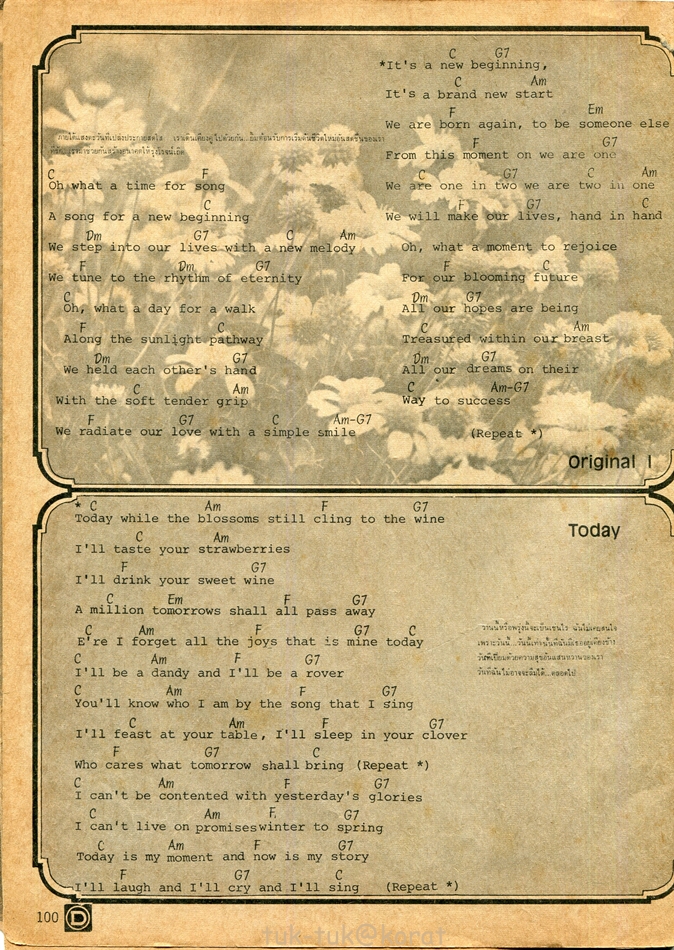 C F
Oh what a time for song
C
A song for a new beginning
Dm G7 C Am
We step into our lives with a new melody
F Dm G7
We tune to the rhythm of eternity
C
Oh, what a day for a walk
F C
Along the sunlight pathway
Dm G7
We held each other's hand
C Am
With the soft tender grip
F G7 C Am-G7
We radiate our love with a simple smile
C G7
*It's a new beginning,
C Am
It's a brand new start
F Em
We are born again, to be someone else
F G7
From this moment on we are one
C G7 C Am
We are one in two we are two in one
F G7 C
We will make our lives, hand in hand
Oh, what a moment to rejoice
F C
For our blooming future
Dm G7
All our hopes are being
C Am
Treasured within our breast
Dm G7
All our dreams on their
C Am-G7
Way to success
(Repeat *)
Original I
* C Am F G7
Today while the blossoms still cling to the wine
C Am
I'll taste your strawberries
F G7
I'll drink your sweet wine
C Em F G7
A million tomorrows shall all pass away
C Am F G7 C
E're I forget all the joys that is mine today
C Am F G7
I'll be a dandy and I'll be a rover
C Am F G7
You'll know who I am by the song that I sing
C Am F G7
I'll feast at your table, I'll sleep in your clover
F G7 C
Who cares what tomorrow shall bring (Repeat *)
C Am F G7
I can't be contented with yesterday's glories
C Am F G7
I can't live on promises winter to spring
C Am F G7
Today is my moment and now is my story
F G7 C
I'll laugh and I'll cry and I'll sing (Repeat *)
Today
100 D
tuk-tuk@korat